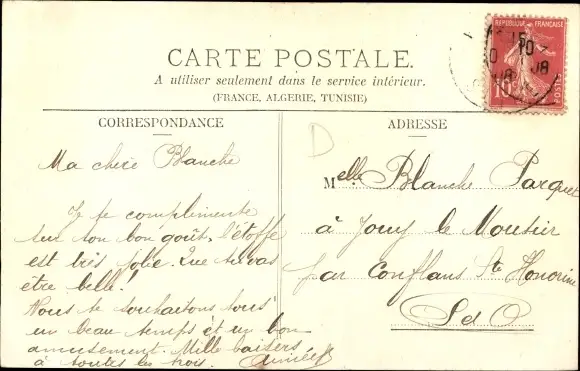 CARTE POSTALE.
A utiliser seulement dans le service intérieur.
(FRANCE, ALGERIE, TUNISIE)
REPUBLIQUE FRANÇAISE
10c
POSTES
15
10
08
CORRESPONDANCE
Ma chère Blanche
Je te complimente
sur ton bon goût, l'étoffe
est très jolie. Que tu vas
être belle!
Nous te souhaitons tous
un beau temps et un bon
amusement. Mille baisers
à toutes les trois. Aimée
ADRESSE
D
Melle Blanche Parquet
à Jouy le Moutier
par Conflans Ste Honorine
S et O